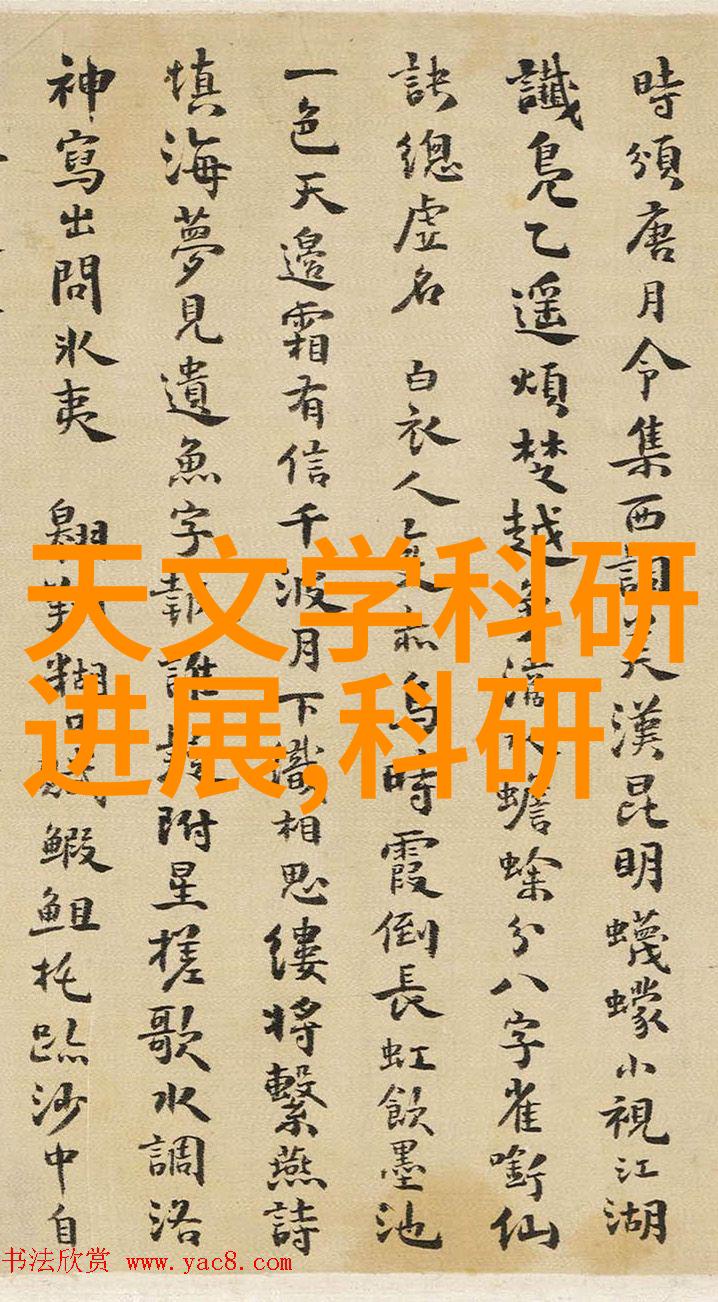 時頒唐月令集西調美漢昆明蠛蠓小視江湖
讖鳧乙遥煩楚越多濱水蟾蜍分八字雀銜仙
訣總虚名 白衣人
烏時霞倒長虹飲墨池
一色天邊霜有信千波月下識相思縷將繫燕詩
慎海夢見遺魚字報誰
附星槎歌水調洛
神寫出問冰夷
糊
鰕鮓
沙中自
天文学科研
进展,科研
书法欣赏 www.yac8.com